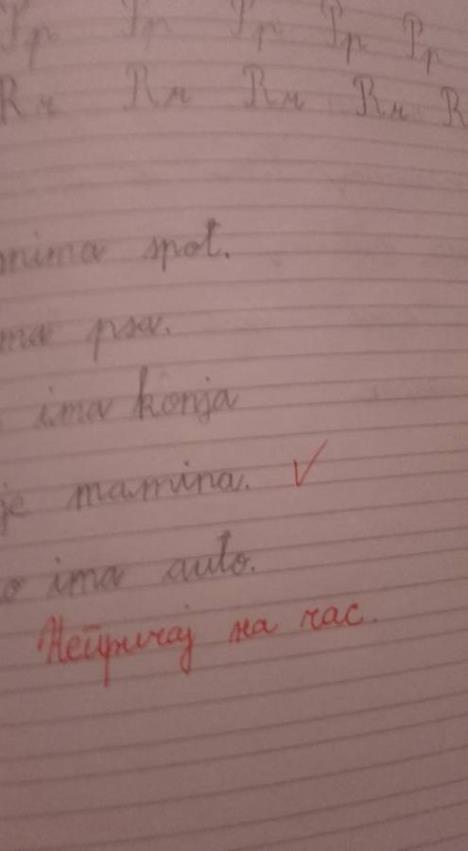 Pp Pp Pp Pp Pp
Rr Rr Rr Rr R
nima spot.
ma psa.
ima konja
je mamina. ✓
o ima auto.
Непричај на час.